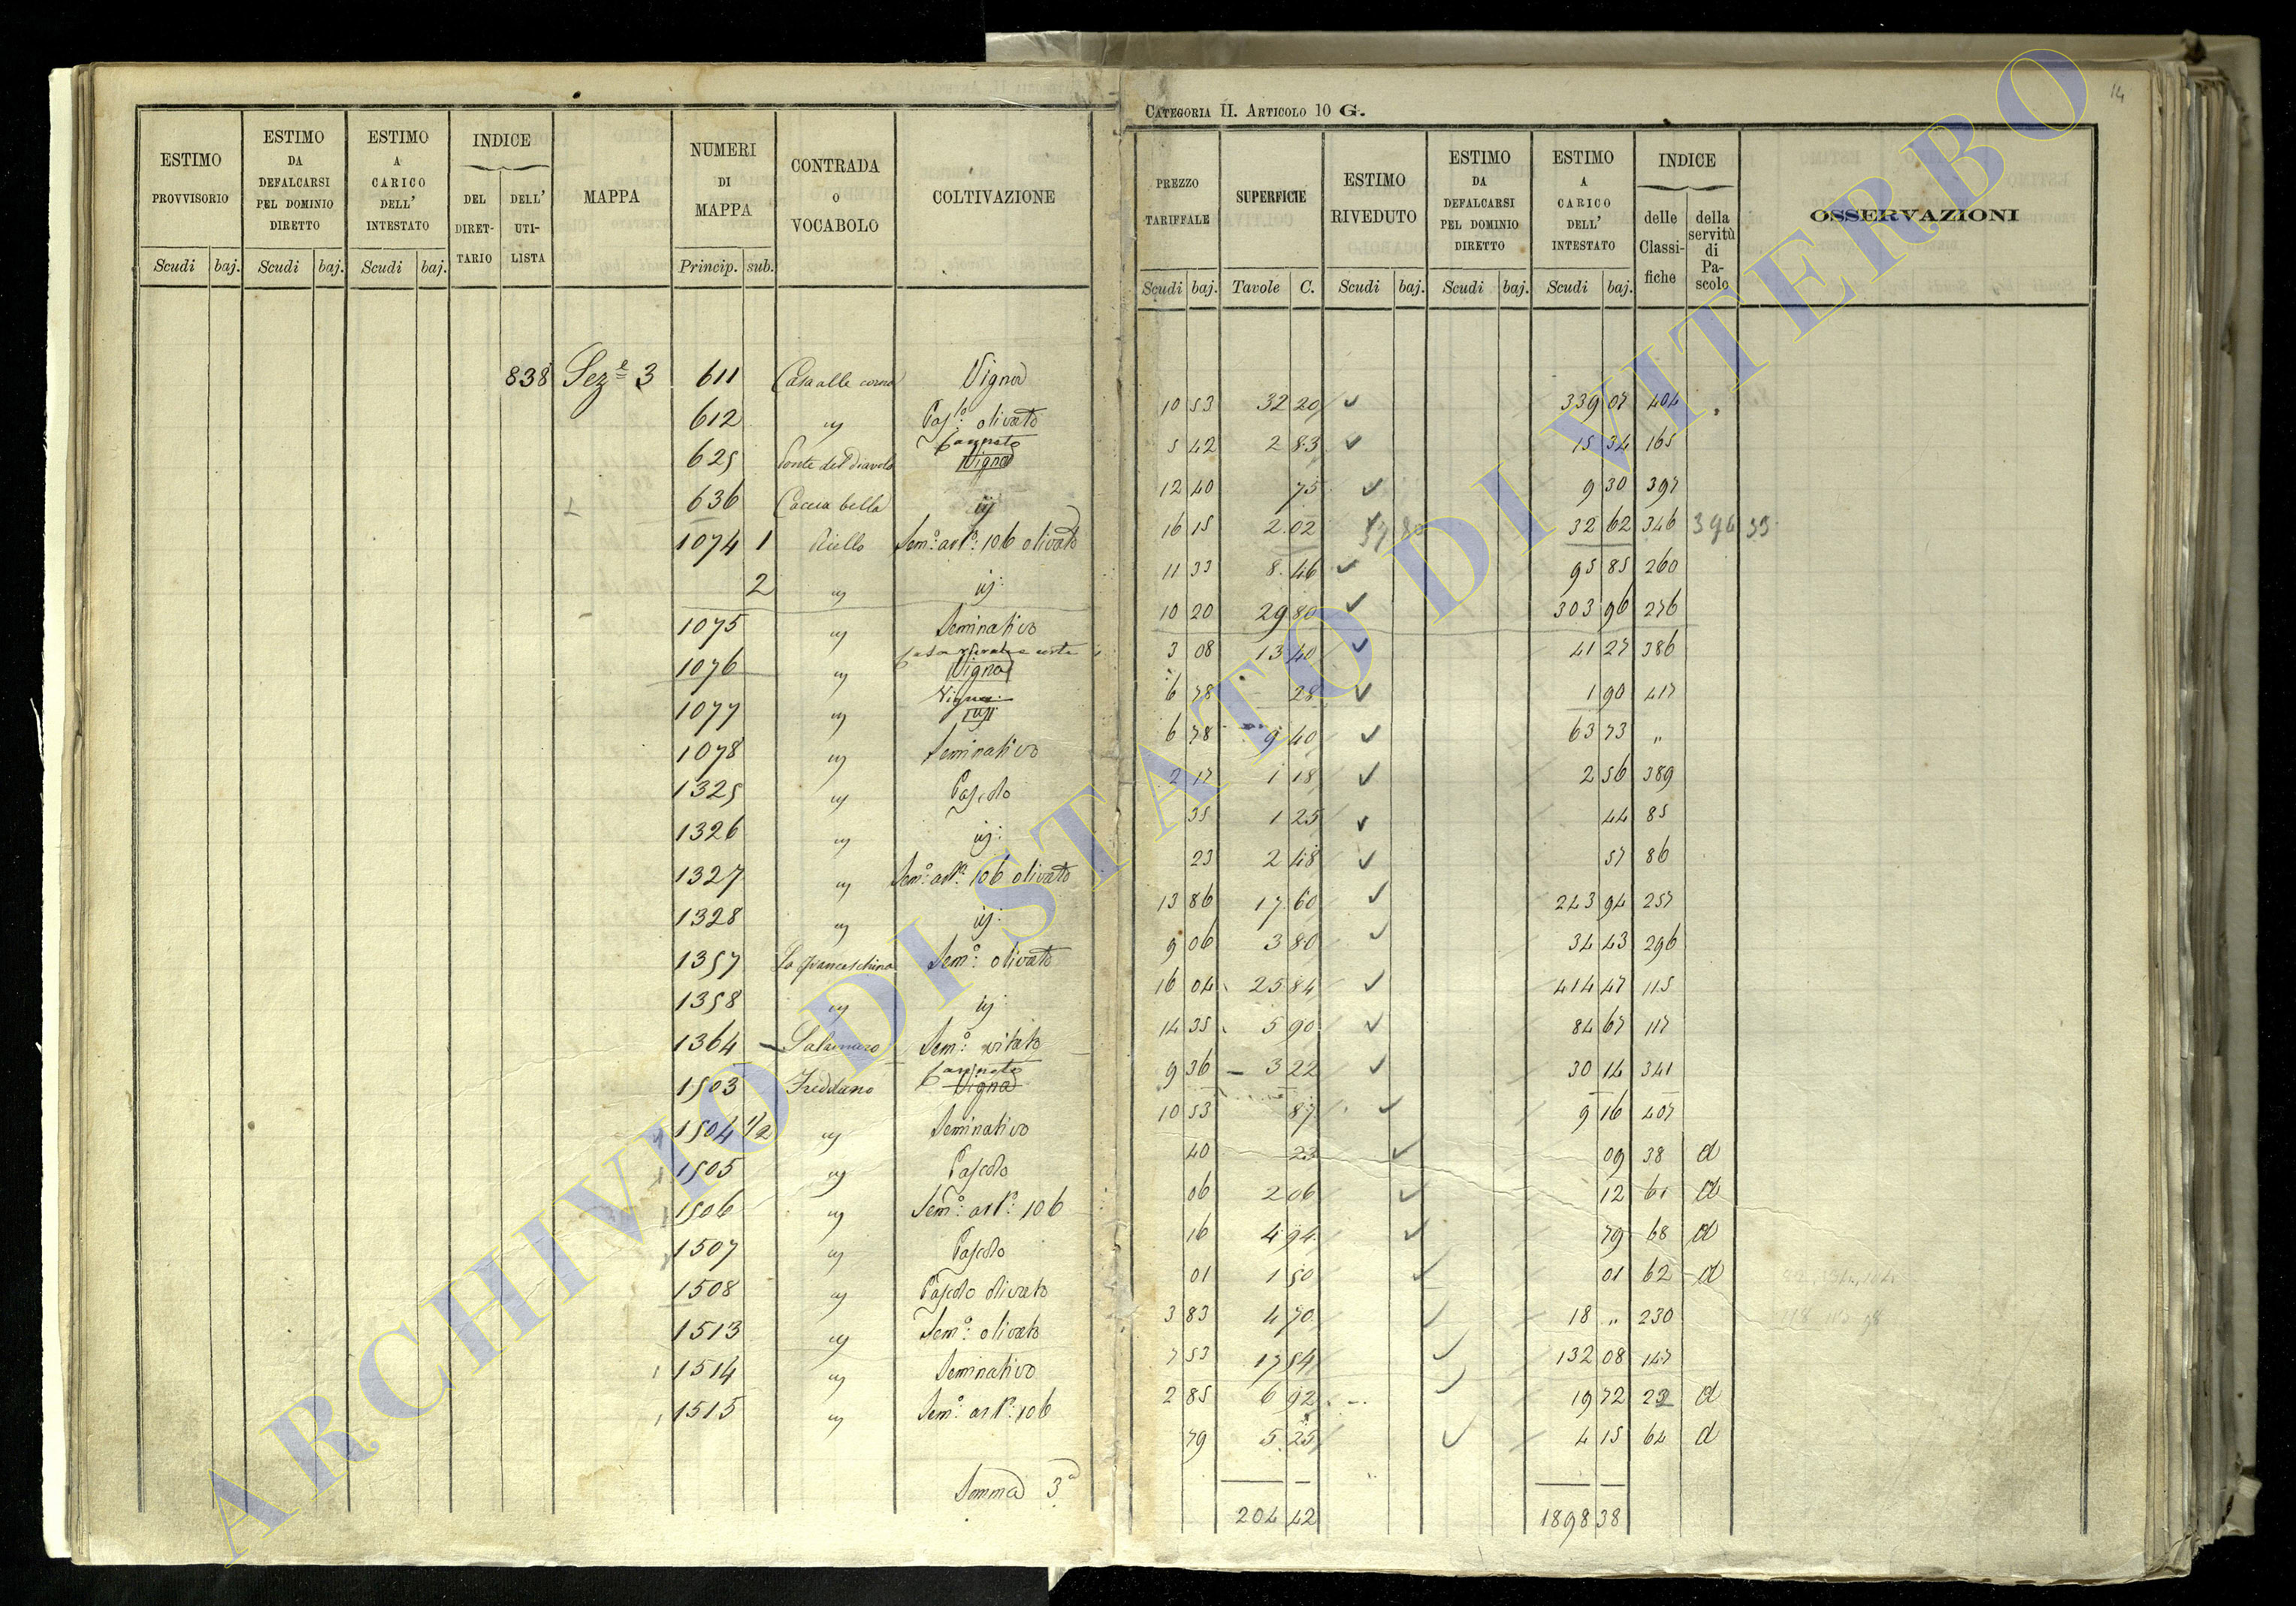 CATEGORIA II. ARTICOLO 10 G. 14
ESTIMO PROVVISORIO Scudi baj. | ESTIMO DA DEFALCARSI PEL DOMINIO DIRETTO Scudi baj. | ESTIMO A CARICO DELL' INTESTATO Scudi baj. | INDICE DEL DIRET-TARIO DELL' UTI-LISTA | MAPPA | NUMERI DI MAPPA Princip. sub. | CONTRADA o VOCABOLO | COLTIVAZIONE | PREZZO TARIFFALE Scudi baj. | SUPERFICIE Tavole C. | ESTIMO RIVEDUTO Scudi baj. | ESTIMO DA DEFALCARSI PEL DOMINIO DIRETTO Scudi baj. | ESTIMO A CARICO DELL' INTESTATO Scudi baj. | INDICE delle Classi-fiche della servitù di Pa-scolo | OSSERVAZIONI
838 Sez.e 3 611 Vigna 10 53 32 20 339 07 404 "
612 " Pas.lo olivato 5 42 2 83 15 34 165
625 Ponte del Diavolo Canneto Vigna 12 40 75 9 30 397
636 Caccia bella id 16 15 2 02 32 62 346 396 33
1074 1 Riello Sem.o art.o 106 olivato 11 33 8 46 95 85 260
2 " id: 10 20 29 80 303 96 276
1075 " Seminativo 3 08 13 40 41 27 386
1076 " Vigna 6 78 28 1 90 417
1077 " Vigna id 6 78 9 40 63 73 "
1078 " Seminativo 2 17 1 18 2 56 389
1325 " Pascolo 35 1 25 44 85
1326 " id: 23 2 48 57 86
1327 " Sem.o art.o 106 olivato 13 86 17 60 243 94 257
1328 " id: 9 06 3 80 34 43 296
1357 La Franceschina Sem.o olivato 16 04 25 84 414 47 115
1358 " id 14 35 5 90 84 67 117
1364 Salamaro Sem.o vitato 9 36 3 22 30 14 341
1503 Freddano Canneto Vigna 10 53 87 9 16 407
1504 1/2 " Seminativo 40 23 09 38 d
1505 " Pascolo 06 2 06 12 61 d
1506 " Sem.o art.o 106 16 4 94 79 68 d
1507 " Pascolo 01 1 50 01 62 d
1508 " Pascolo olivato 3 83 4 70 18 " 230
1513 " Sem.o olivato 7 53 17 54 132 08 147
1514 " Seminativo 2 85 6 92 19 72 22 d
1515 " Sem.o art.o 106 79 5 25 4 15 64 d
Somma 3a 204 42 1898 38
ARCHIVIO DI STATO DI VITERBO